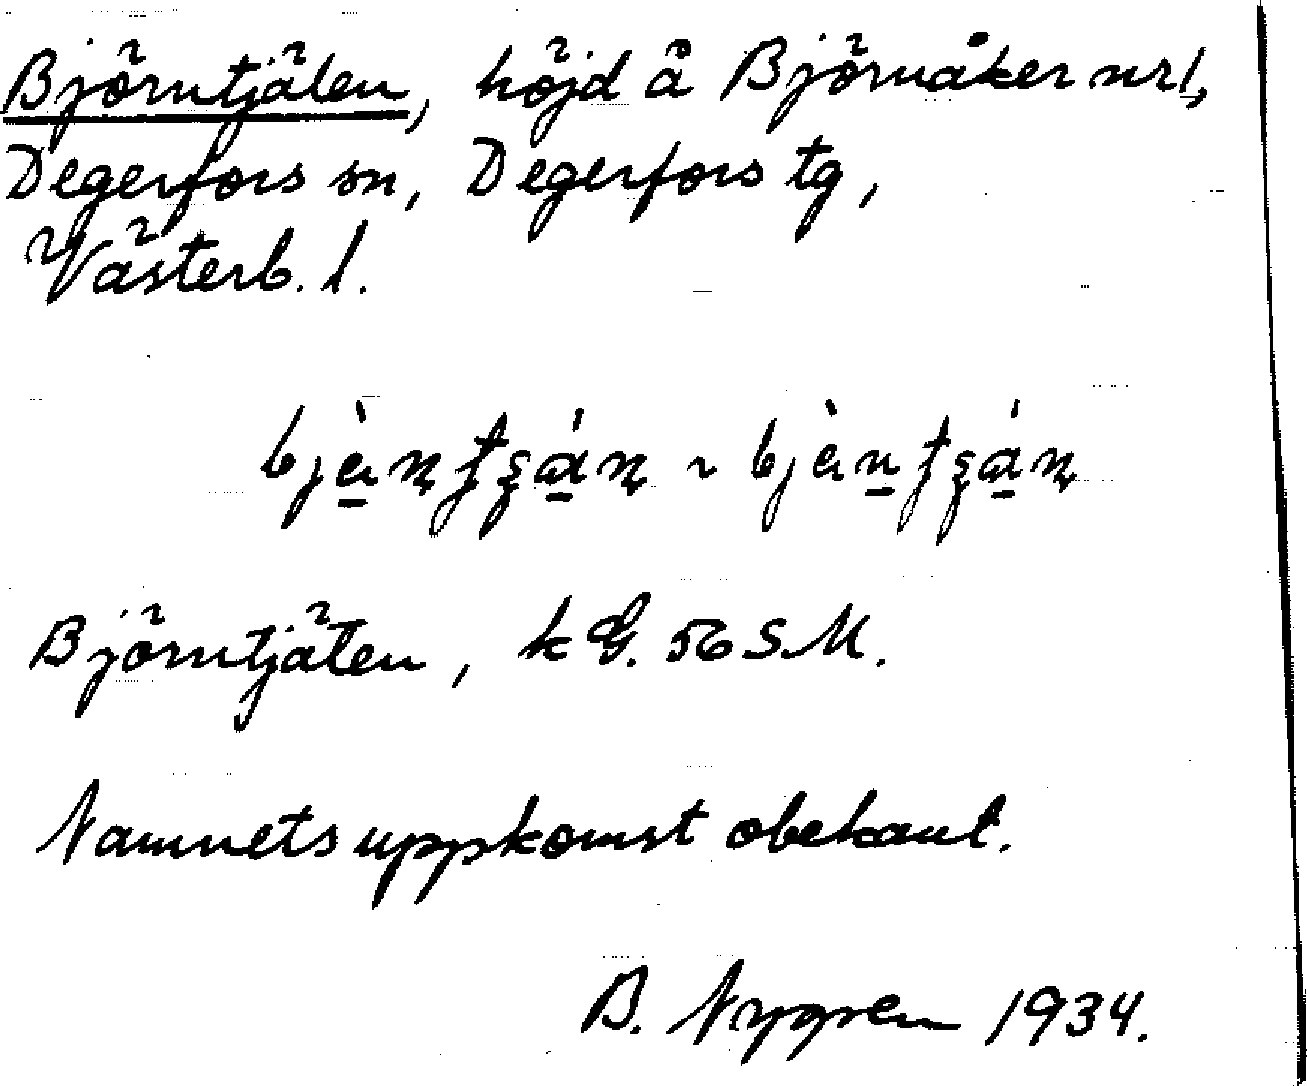 Björntjälen, höjd å Björnåker nr1,
Degerfors sn, Degerfors tg,
Västerb. l.
Björntjälen, k G. 56 SM.
Namnets uppkomst obekant.
B. Nygren 1934.